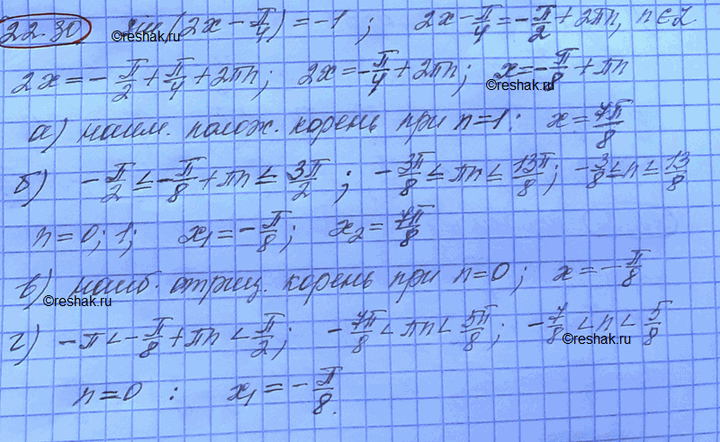 22.30 sin(2x - π/4) = -1 ; 2x - π/4 = -π/2 + 2πn, n∈Z
©reshak.ru
2x = -π/2 + π/4 + 2πn; 2x = -π/4 + 2πn; x = -π/8 + πn
©reshak.ru
а) наим. полож. корень при n=1: x = 7π/8
©reshak.ru
б) -π/2 ≤ -π/8 + πn ≤ 3π/2 ; -3π/8 ≤ πn ≤ 13π/8; -3/8 ≤ n ≤ 13/8
n = 0; 1; x₁ = -π/8; x₂ = 7π/8
©reshak.ru
в) наиб. отриц. корень при n=0; x = -π/8
©reshak.ru
г) -π < -π/8 + πn < π/2; -7π/8 < πn < 5π/8; -7/8 < n < 5/8
©reshak.ru
n = 0 : x₁ = -π/8.